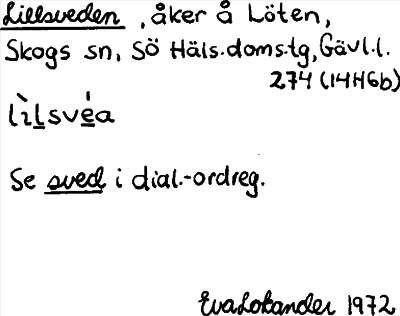 Lillsveden, åker å Löten,
Skogs sn, Sö Häls.doms.tg, Gävl.l.
274 (14H6b)
lìlsvéa
Se sved i dial.-ordreg.
Eva Lokander 1972